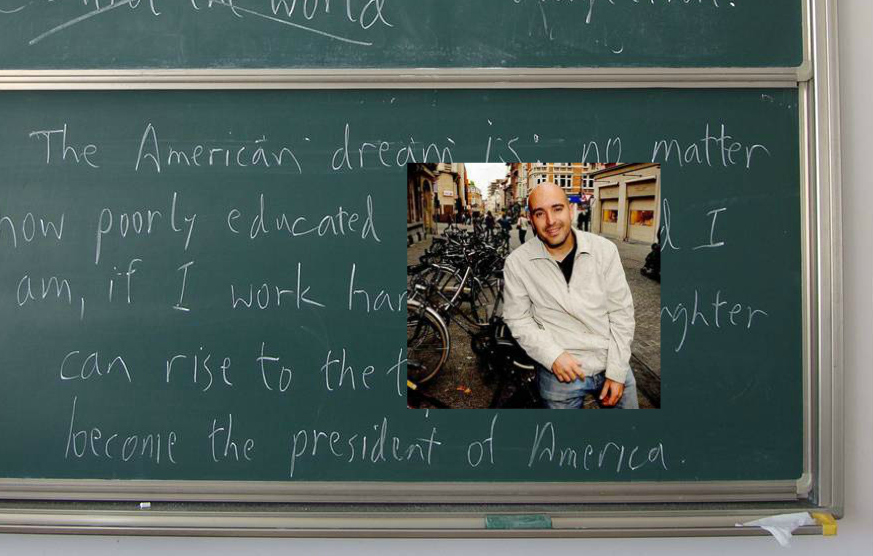 the world
The American dream is: no matter
how poorly educated I
am, if I work
can rise to the
become the president of America.